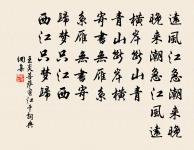 遠風江急潮來晚
晚來潮急江風遠
橫岸斷山青
青山斷岸橫
寄書無雁系
系雁無書寄
歸夢只江西
西江只夢歸
王炎菩薩蠻江干詞典
網集